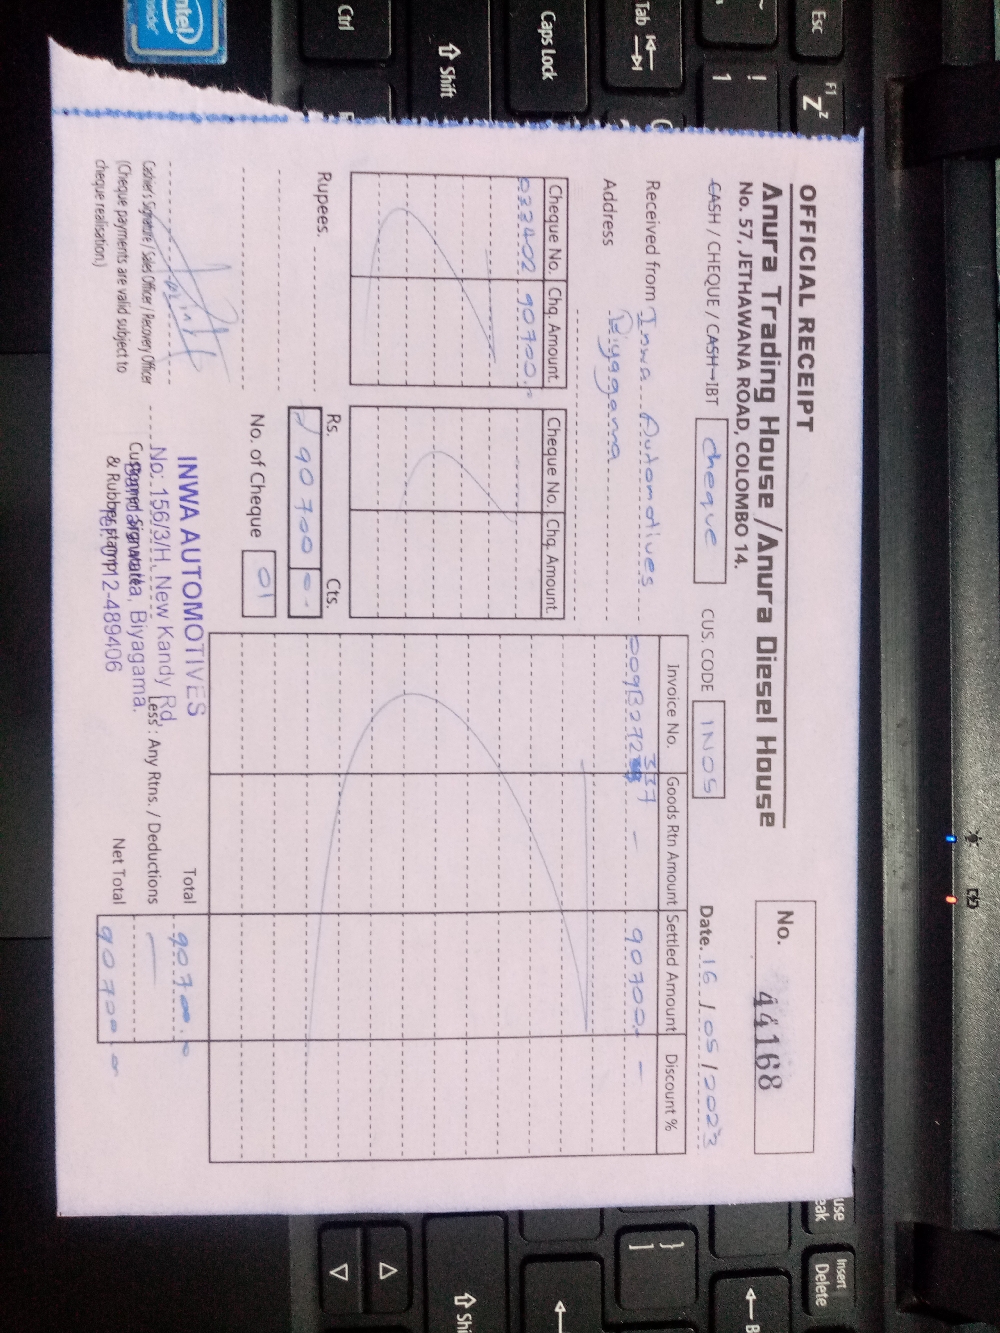 OFFICIAL RECEIPT
Anura Trading House / Anura Diesel House
No. 57, JETHAWANA ROAD, COLOMBO 14.
No. 44168
CASH / CHEQUE / CASH-IBT cheque CUS. CODE IN05 Date. 16 / 05 / 2023
Received from Inwa Automotives
Address Biyagama
Cheque No. Chq. Amount.
033402 90700.
Cheque No. Chq. Amount.
Invoice No. Goods Rtn Amount Settled Amount Discount %
337
009B272 - 90700. -
Rupees.
Rs. Cts.
90700
No. of Cheque 01
Cashier's Signature / Sales Officer / Recovery Officer
(Cheque payments are valid subject to
cheque realisation)
INWA AUTOMOTIVES
No: 156/3/H, New Kandy Rd,
Biyagama.
Customer Signature
& Rubber stamp
012-489406
Total 90700
Less : Any Rtns. / Deductions —
Net Total 90700
intel
inside
Ctrl
Shift
Caps Lock
Tab
Esc
F1
Zz
!
1
}
]
Insert
Delete